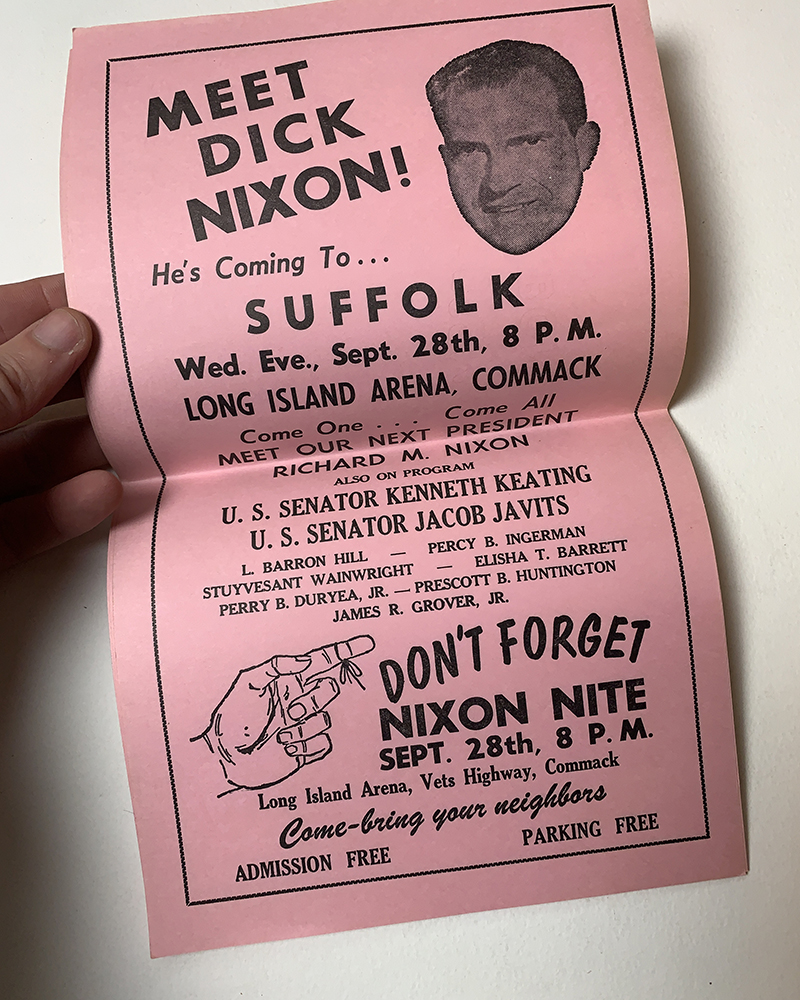 MEET
DICK
NIXON!
He's Coming To...
SUFFOLK
Wed. Eve., Sept. 28th, 8 P. M.
LONG ISLAND ARENA, COMMACK
Come One . . . Come All
MEET OUR NEXT PRESIDENT
RICHARD M. NIXON
ALSO ON PROGRAM
U. S. SENATOR KENNETH KEATING
U. S. SENATOR JACOB JAVITS
L. BARRON HILL — PERCY B. INGERMAN
STUYVESANT WAINWRIGHT — ELISHA T. BARRETT
PERRY B. DURYEA, JR. — PRESCOTT B. HUNTINGTON
JAMES R. GROVER, JR.
DON'T FORGET
NIXON NITE
SEPT. 28th, 8 P. M.
Long Island Arena, Vets Highway, Commack
Come-bring your neighbors
ADMISSION FREE PARKING FREE